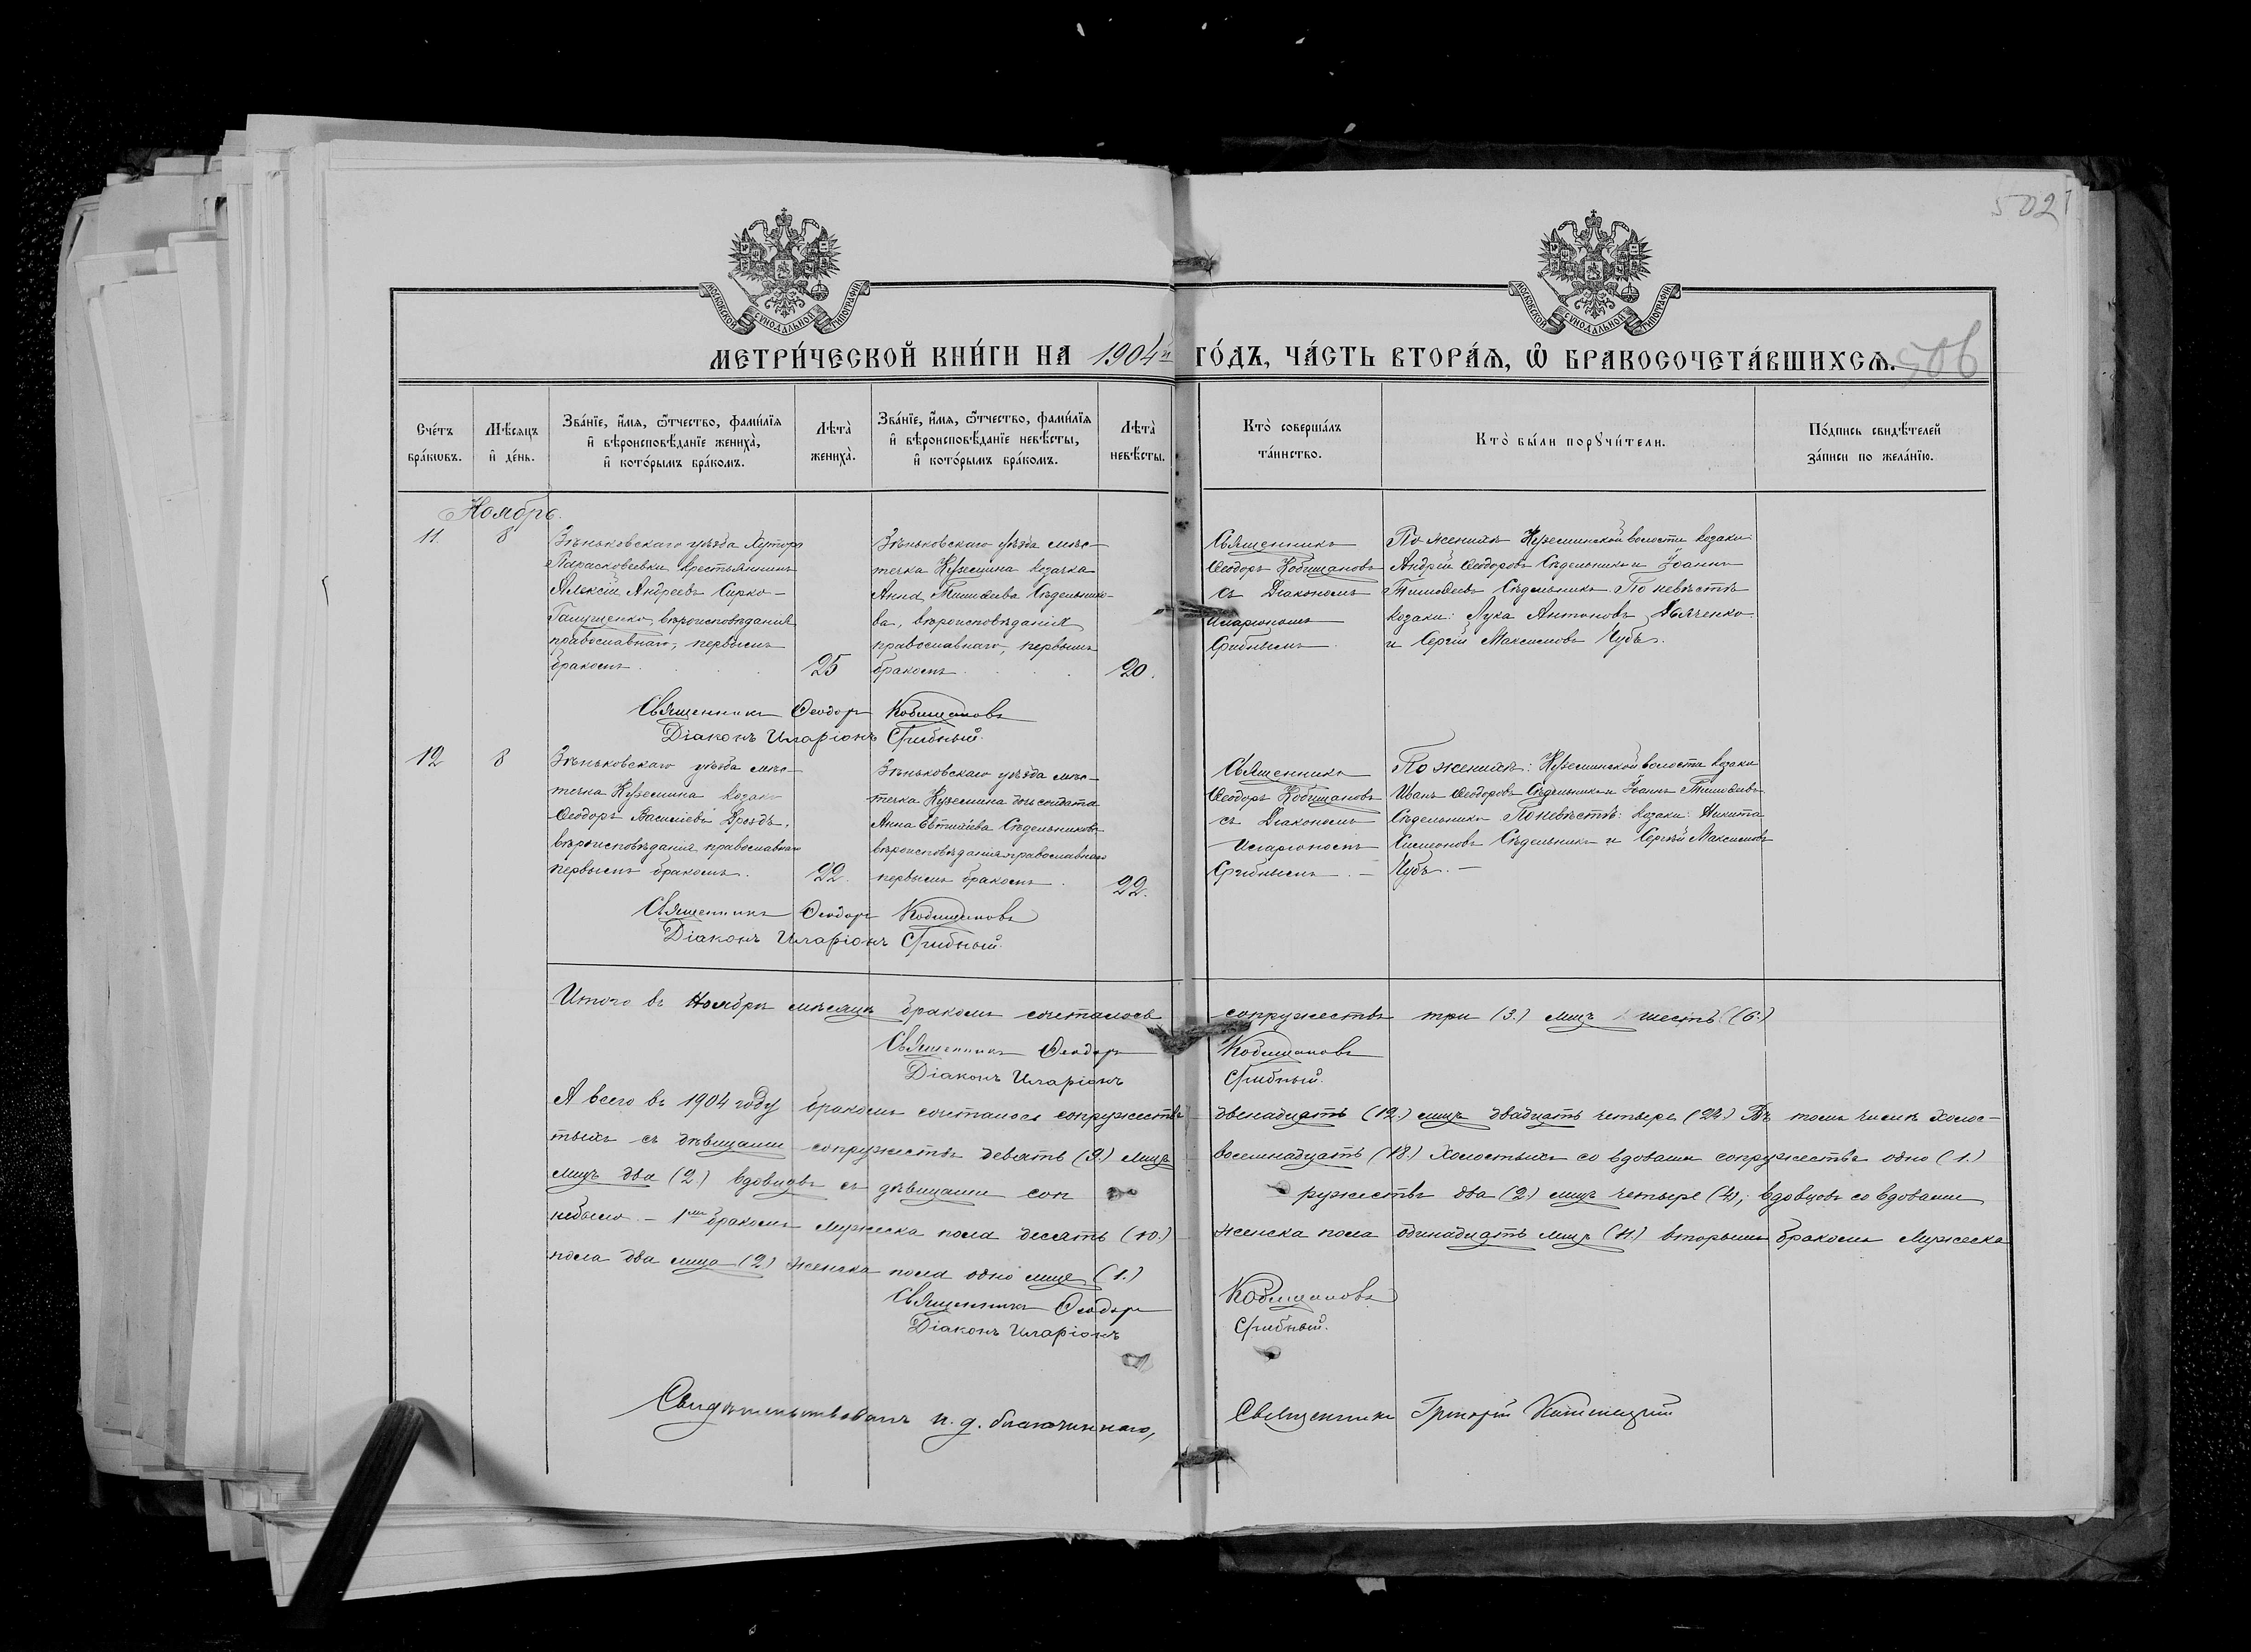 5021
МОСКОВСКОЙ СѴНОДАЛЬНОЙ ТИПОГРАФІИ
МОСКОВСКОЙ СѴНОДАЛЬНОЙ ТИПОГРАФІИ
МЕТРИ́ЧЕСКОЙ КНИ́ГИ НА 1904й ГО́ДЪ, ЧА́СТЬ ВТОРА́Ѧ, Ѿ БРАКОСОЧЕТА́ВШИХСѦ.
506
Сче́тъ бра́кѡвъ.
Мѣ́сяцъ и҆ де́нь.
Зва́нїе, и҆́мя, ѻ҆́тчество, фами́лїя и҆ вѣроисповѣ́данїе жениха̀, и҆ кото́рымъ бра́комъ.
Лѣ́та̀ жениха̀.
Зва́нїе, и҆́мя, ѻ҆́тчество, фами́лїя и҆ вѣроисповѣ́данїе невѣ́сты, и҆ кото́рымъ бра́комъ.
Лѣ́та̀ невѣ́сты.
Кто̀ соверша́лъ та́инство.
Кто̀ бы́ли порꙋчи́тели.
По́дпись свидѣ́телей за́писи по жела́нїю.
Ноябрь.
11. 8
Зѣньковскаго уѣзда Хутора
Парасковеевки крестьянинъ
Алексій Андреевъ Сирко-
Галущенко, вѣроисповѣданія
православнаго, первымъ
бракомъ.
25
Зѣньковскаго уѣзда мѣс-
течка Куземина козачка
Анна Тимоѳеева Сѣдельнико-
ва, вѣроисповѣданія
православнаго, первымъ
бракомъ
20.
Священникъ
Ѳеодоръ Кобищановъ
съ Діакономъ
Иларіономъ
Грибнымъ.
По женихѣ Куземинской волости козаки:
Андрей Ѳеодоровъ Сѣдельникъ и Іоаннъ
Тимоѳеевъ Сѣдельникъ. По невѣстѣ
козаки: Лука Антоновъ Дьяченко
и Сергій Максимовъ Чубъ.
Священникъ Ѳеодоръ Кобищановъ
Діаконъ Иларіонъ Грибный.
12 8
Зѣньковскаго уѣзда мѣс-
течка Куземина козакъ
Ѳеодоръ Василіевъ Дроздъ,
вѣроисповѣданія православнаго
первымъ бракомъ.
22.
Зѣньковскаго уѣзда мѣс-
течка Куземина дочь солдата
Анна Евѳиміева Сѣдельникова
вѣроисповѣданія православнаго
первымъ бракомъ.
22.
Священникъ
Ѳеодоръ Кобищановъ
съ Діакономъ
Иларіономъ
Грибнымъ. —
По женихѣ: Куземинской волости козаки
Иванъ Ѳеодоровъ Сѣдельникъ и Іоаннъ Тимоѳеевъ
Сѣдельникъ По невѣстѣ: козаки: Никита
Симеоновъ Сѣдельникъ и Сергѣй Максимовъ
Чубъ. —
Священникъ Ѳеодоръ Кобищановъ
Діаконъ Иларіонъ Грибный.
Итого въ Ноябрѣ мѣсяцѣ бракомъ сочеталось супружествъ три (3.) лицъ шесть (6.)
Священникъ Ѳеодоръ Кобищановъ
Діаконъ Иларіонъ Грибный.
А всего въ 1904 году бракомъ сочеталося супружествъ двенадцать (12.) лицъ двадцать четыре (24.) Въ томъ числѣ холос-
тыхъ съ дѣвицами супружествъ девять (9.) лицъ восемнадцать (18.) Холостыхъ со вдовами супружество одно (1.)
лицъ два (2.) вдовцовъ съ дѣвицами суп ружествъ два (2) лицъ четыре (4), вдовцовъ со вдовами
небыло. — 1мъ бракомъ мужеска пола десять (10.) женска пола одинадцать лицъ (11.) вторымъ бракомъ Мужеска
пола два лица (2.) женска пола одно лице (1.)
Священникъ Ѳеодоръ Кобищановъ
Діаконъ Иларіонъ Грибный.
Свидѣтельствовалъ и. д. благочиннаго, Священникъ Григорій